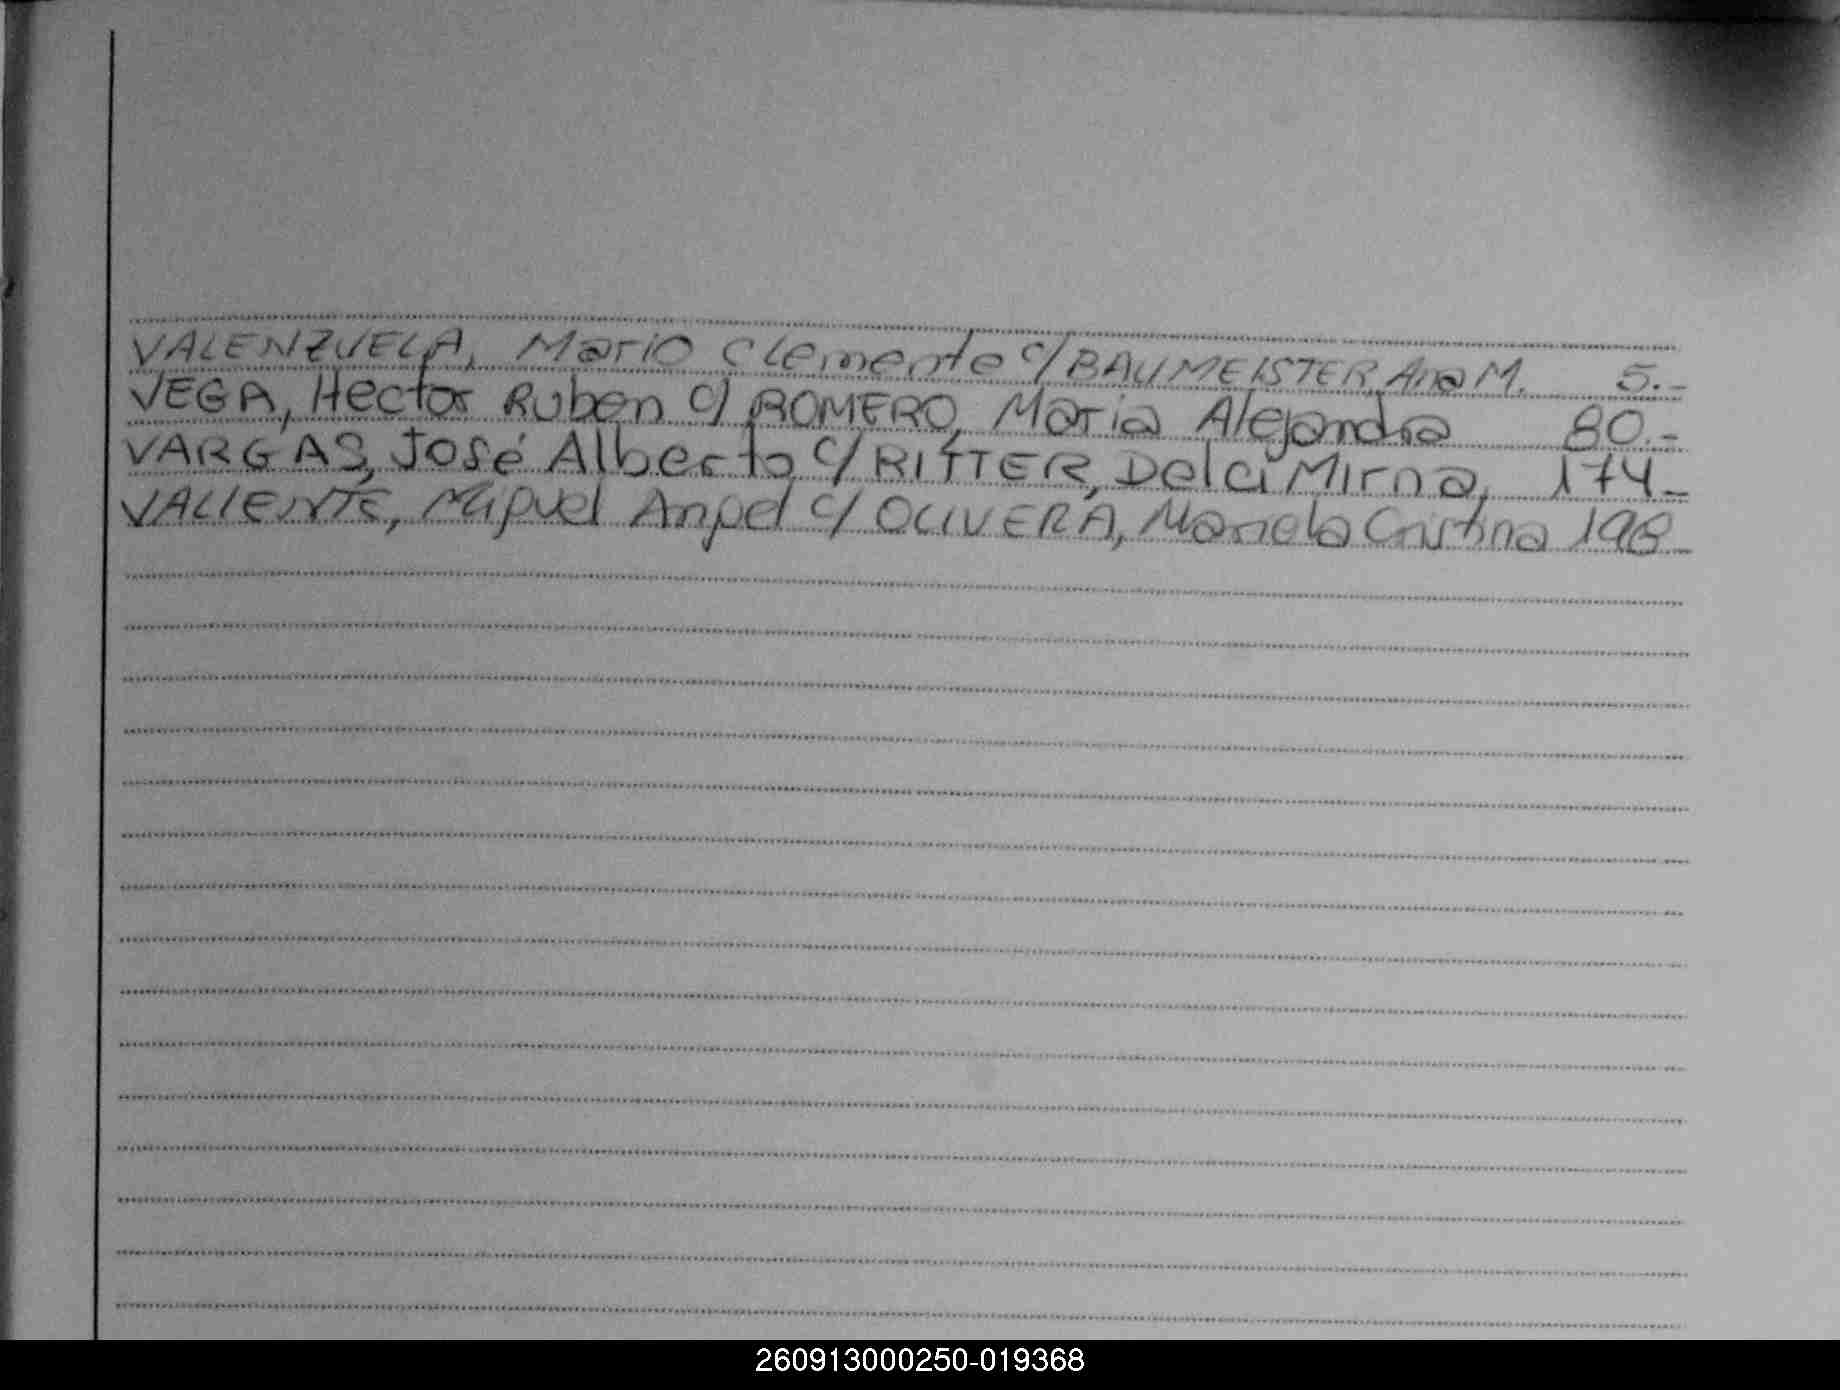 VALENZUELA, Mario Clemente c/ BAUMEISTER, Ana M. 5.-
VEGA, Hector Ruben c/ ROMERO, Maria Alejandra 80.-
VARGAS, José Alberto c/ RITTER, Delci Mirna, 174-
VALIENTE, Miguel Angel c/ OLIVERA, Mariela Cristina 198-
260913000250-019368